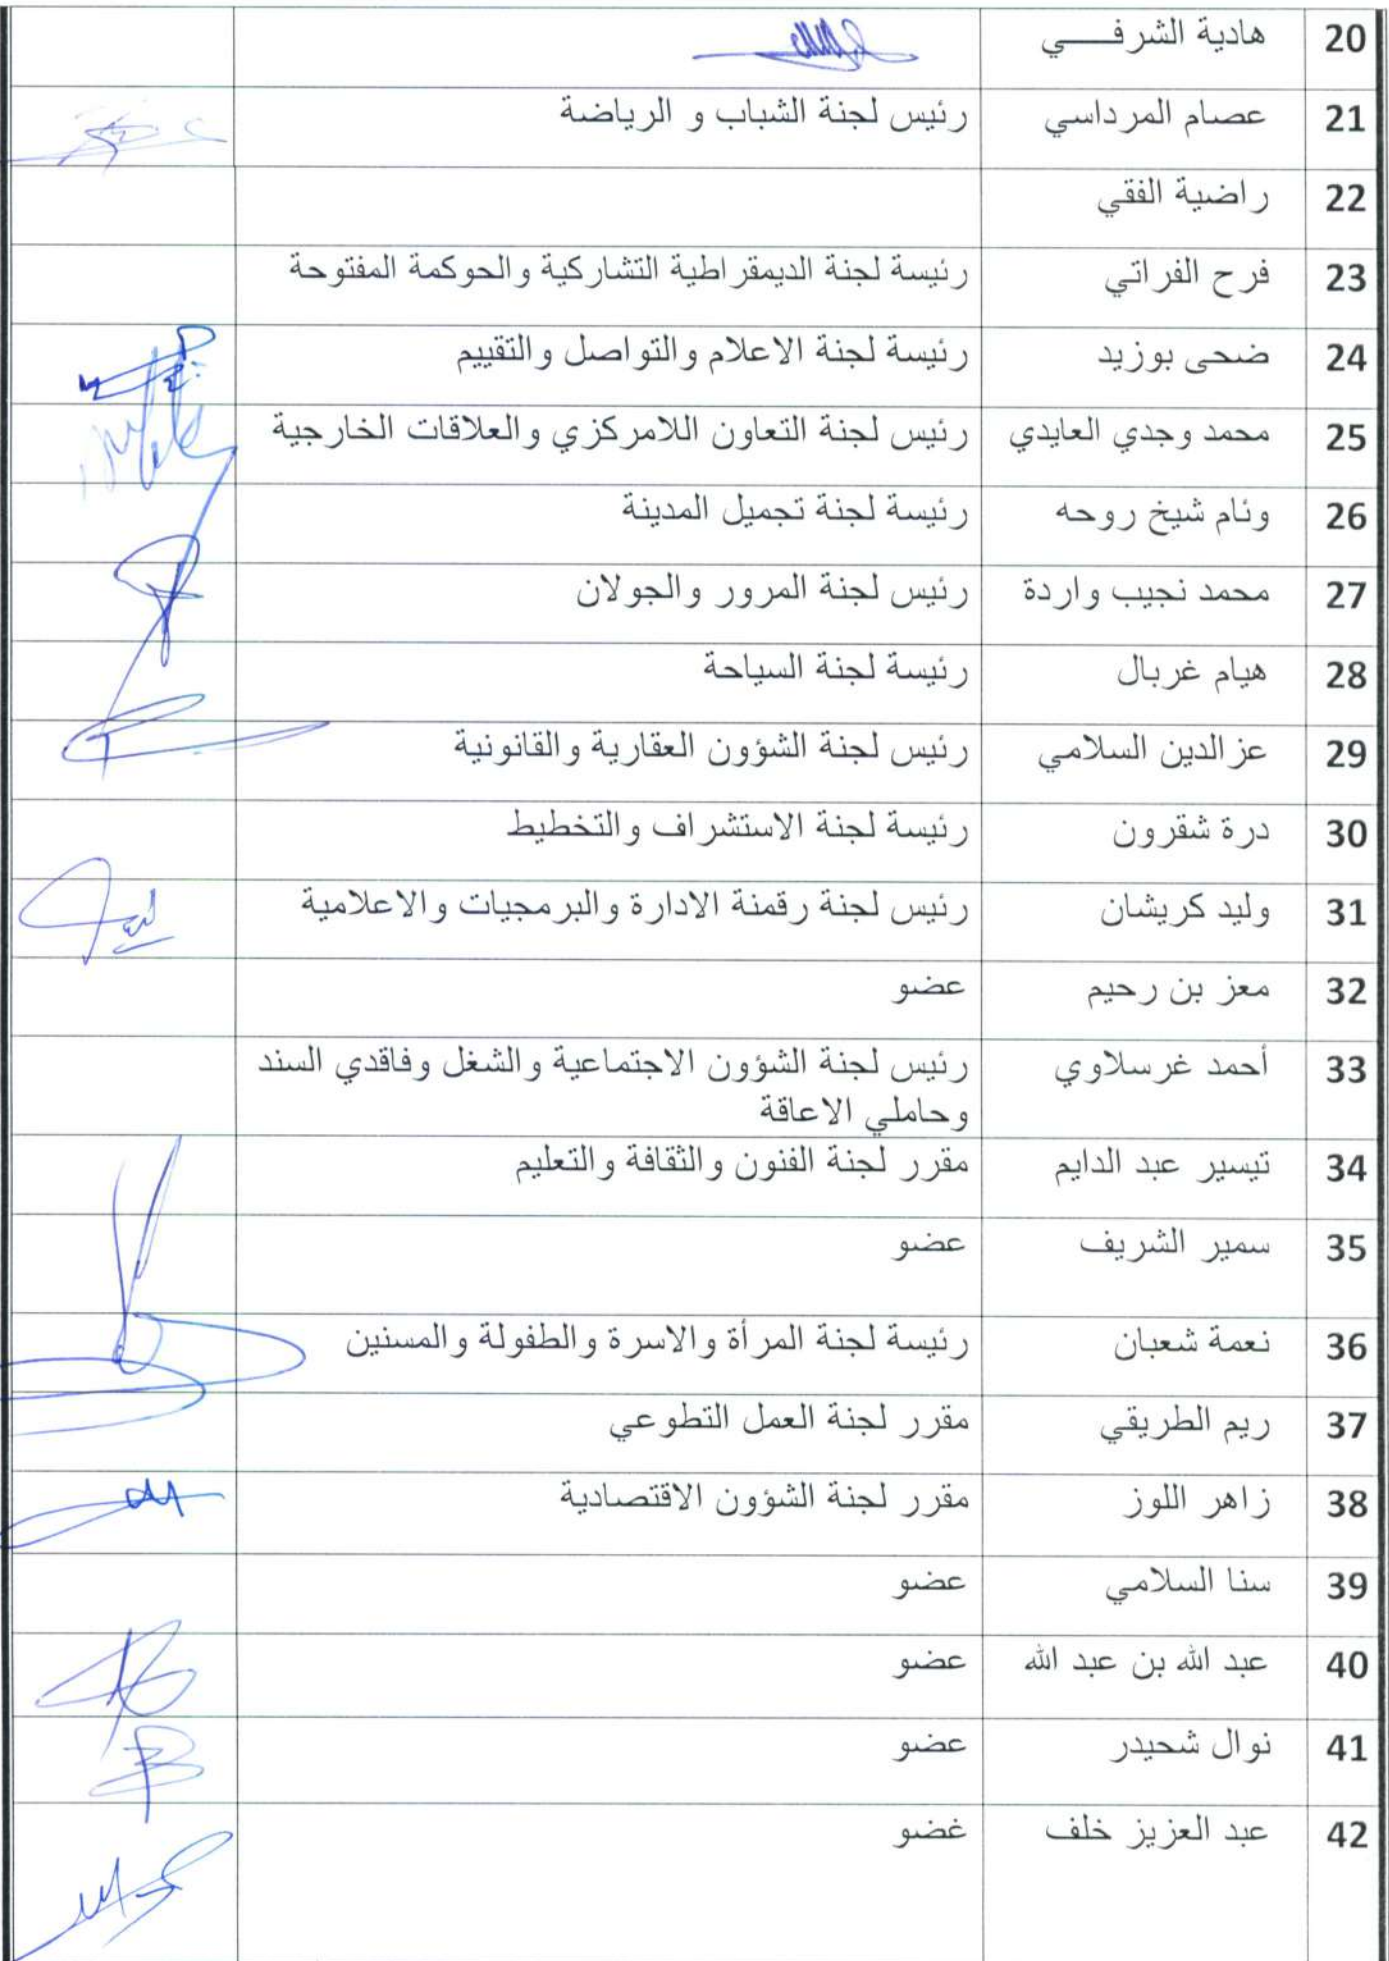 20 هادية الشرفـــي
21 عصام المرداسي رئيس لجنة الشباب و الرياضة
22 راضية الفقي
23 فرح الفراتي رئيسة لجنة الديمقراطية التشاركية والحوكمة المفتوحة
24 ضحى بوزيد رئيسة لجنة الاعلام والتواصل والتقييم
25 محمد وجدي العايدي رئيس لجنة التعاون اللامركزي والعلاقات الخارجية
26 وئام شيخ روحه رئيسة لجنة تجميل المدينة
27 محمد نجيب واردة رئيس لجنة المرور والجولان
28 هيام غربال رئيسة لجنة السياحة
29 عزالدين السلامي رئيس لجنة الشؤون العقارية والقانونية
30 درة شقرون رئيسة لجنة الاستشراف والتخطيط
31 وليد كريشان رئيس لجنة رقمنة الادارة والبرمجيات والاعلامية
32 معز بن رحيم عضو
33 أحمد غرسلاوي رئيس لجنة الشؤون الاجتماعية والشغل وفاقدي السند
وحاملي الاعاقة
34 تيسير عبد الدايم مقرر لجنة الفنون والثقافة والتعليم
35 سمير الشريف عضو
36 نعمة شعبان رئيسة لجنة المرأة والاسرة والطفولة والمسنين
37 ريم الطريقي مقرر لجنة العمل التطوعي
38 زاهر اللوز مقرر لجنة الشؤون الاقتصادية
39 سنا السلامي عضو
40 عبد الله بن عبد الله عضو
41 نوال شحيدر عضو
42 عبد العزيز خلف غضو